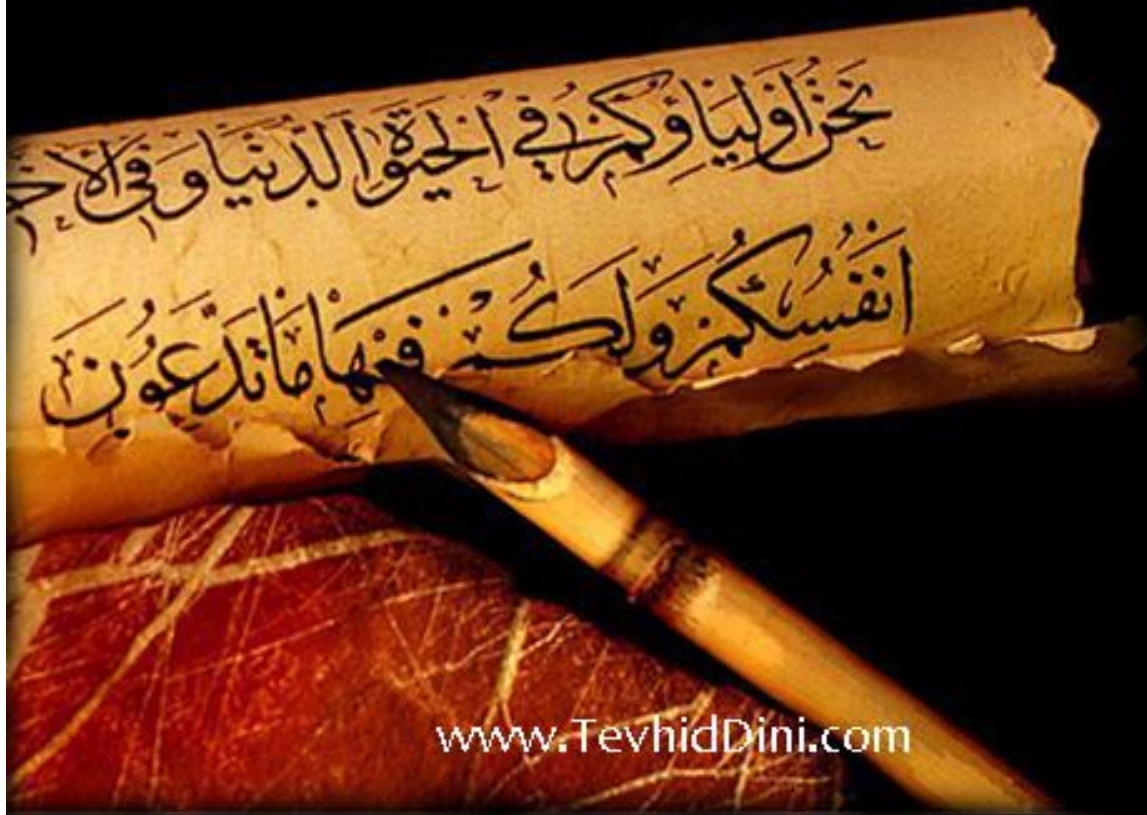 نَحْنُ اَوْلِيَاؤُكُمْ فِي الْحَيٰوةِ الدُّنْيَا وَفِي الْاٰخِ
اَنْفُسُكُمْ وَلَكُمْ فِيْهَا مَا تَدَّعُوْنَ
www.TevhidDini.com